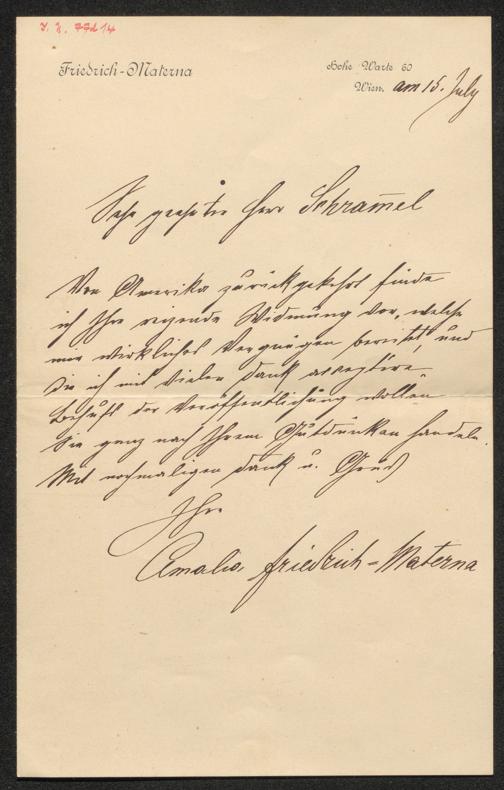 I. N. 77214
Friedrich-Materna
Hohe Warte 60
Wien, am 15. July
Sehr geehrter Herr Schram̄el
Von Amerika zurückgekehrt finde
ich Ihre reizende Widmung vor, welche
mir wirkliches Vergnügen bereitet, und
die ich mit vielen Dank acceptire
Behufs der Veröffentlichung wollen
Sie ganz nach Ihrem Gutdünken handeln.
Mit nochmaligen Dank u. Gruß
Ihre
Amalie Friedrich-Materna